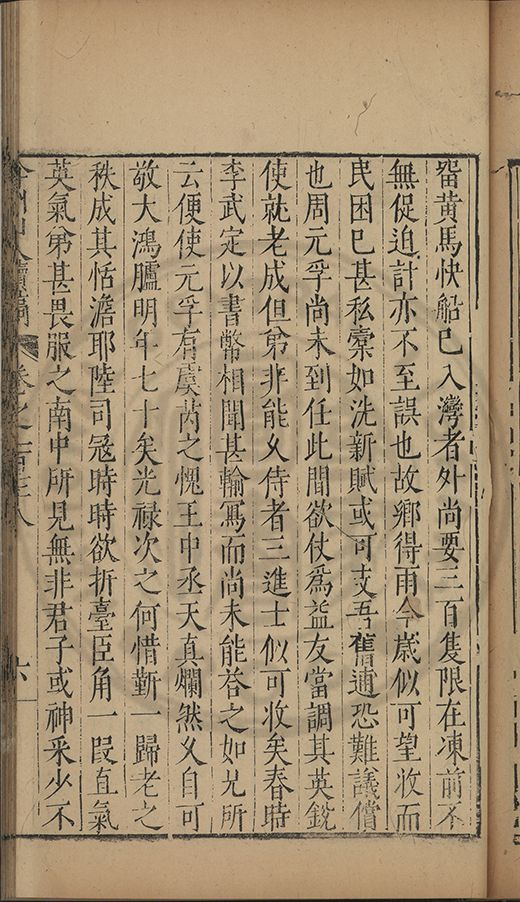 畱黄馬快船已入灣者外尚要二百隻限在凍前不
無促迫計亦不至誤也故鄉得雨今歲似可望收而
民困已甚私橐如洗新賦或可支吾舊逋恐難議償
也周元孚尚未到任此間欲仗爲益友當調其英銳
使就老成但弟非能久侍者三進士似可收矣春時
李武定以書幣相聞甚輸寫而尚未能答之如兄所
云便使元孚有虞芮之愧王中丞天真爛然又自可
敬大鴻臚明年七十矣光禄次之何惜靳一歸老之
秩成其恬澹耶陸司冦時時欲折臺臣角一段直氣
英氣弟甚畏服之南中所見無非君子或神采少不
人續稿 卷之一百
六